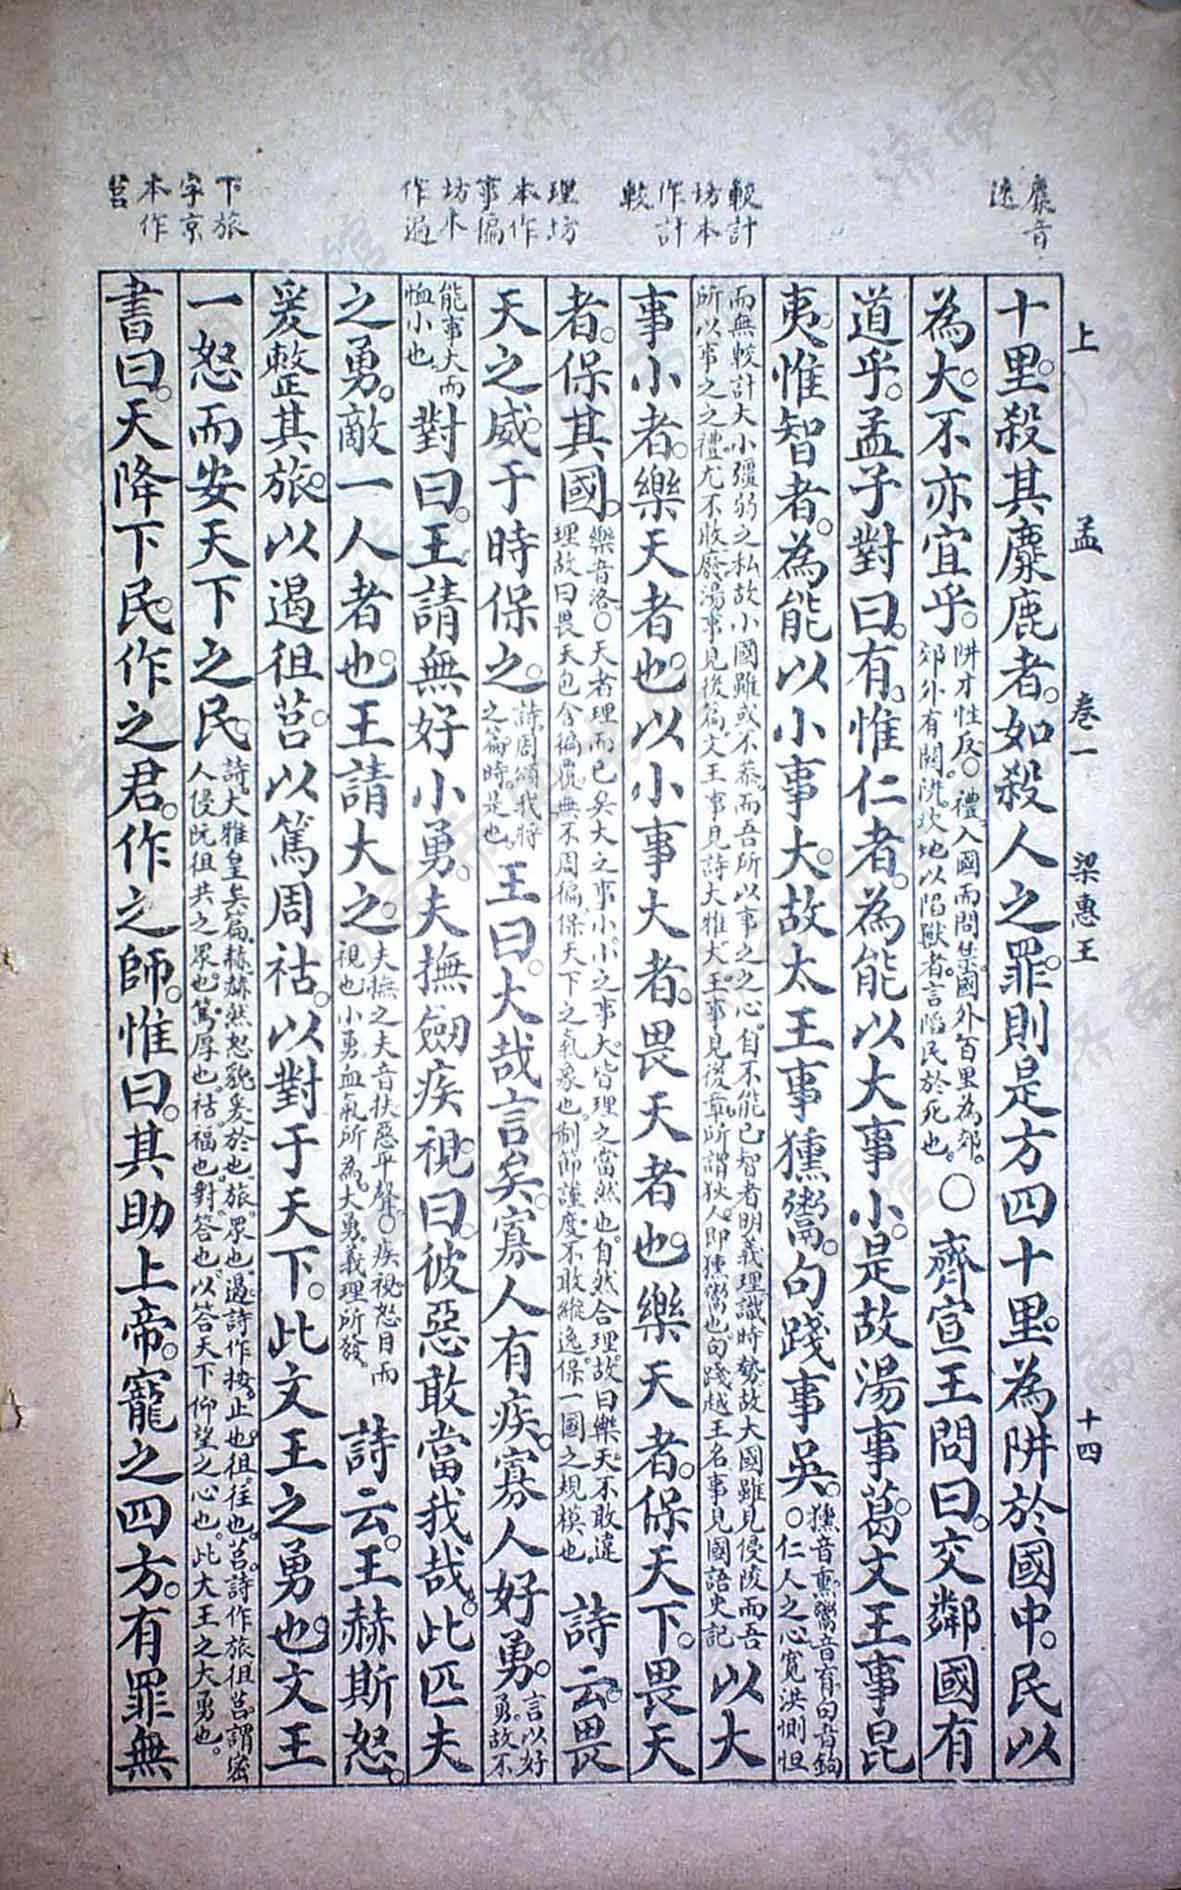 麋音
迷
較計
坊本
作計
較
理坊
本作
事徧
坊本
作遍
下旅
字京
本作
莒
上 孟 卷一 梁惠王 十四
十里。殺其麋鹿者。如殺人之罪。則是方四十里。為阱於國中。民以
為大。不亦宜乎。阱才性反。○禮入國而問禁。國外百里為郊。郊外有關。阱坎地以陷獸者。言陷民於死也。○齊宣王問曰。交鄰國有
道乎。孟子對曰。有。惟仁者。為能以大事小。是故湯事葛。文王事昆
夷。惟智者。為能以小事大。故太王事獯鬻。句踐事吳。獯音熏。鬻音育。句音鉤。○仁人之心。寬洪惻怛
而無較計大小彊弱之私。故小國雖或不恭。而吾所以事之之心。自不能已。智者明義理識時勢。故大國雖見侵陵。而吾所以事之之禮。尤不敢廢。湯事見後篇。文王事見詩大雅。大王事見後章。所謂狄人。即獯鬻也。句踐越王名。事見國語史記 以大
事小者。樂天者也。以小事大者。畏天者也。樂天者。保天下。畏天
者。保其國。樂音洛。○天者理而已矣。大之事小。小之事大。皆理之當然也。自然合理。故曰樂天。不敢違理。故曰畏天。包含徧覆。無不周徧。保天下之氣象也。制節謹度。不敢縱逸。保一國之規模也。 詩云。畏
天之威。于時保之。詩周頌我將之篇。時。是也。王曰。大哉言矣。寡人有疾。寡人好勇。言以好勇。故不
能事大而恤小也。對曰。王請無好小勇。夫撫劒疾視。曰。彼惡敢當我哉。此匹夫
之勇。敵一人者也。王請大之。夫撫之夫音扶。惡平聲。○疾視。怒目而視也。小勇。血氣所為。大勇。義理所發。 詩云。王赫斯怒。
爰整其旅。以遏徂莒。以篤周祜。以對于天下。此文王之勇也。文王
一怒而安天下之民。詩大雅皇矣篇。赫。赫然怒貌。爰。於也。旅。眾也。遏。詩作按。止也。徂。往也。莒。詩作旅。徂莒。謂密人侵阮徂共之眾也。篤。厚也。祜。福也。對。答也。以答天下仰望之心也。此大王之大勇也。
書曰。天降下民。作之君。作之師。惟曰。其助上帝。寵之四方。有罪無